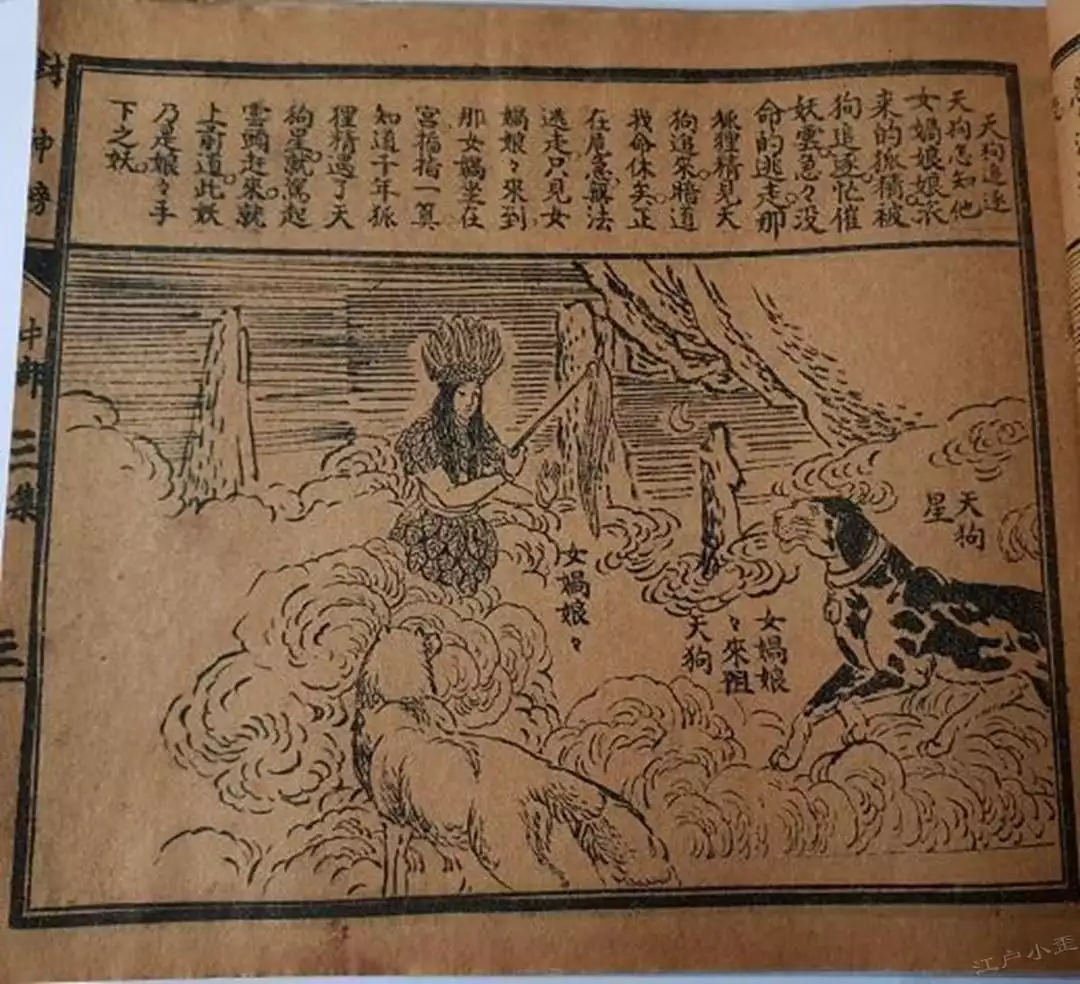 天狗追逐
天狗怎知他
女媧娘娘派
来的狐精被
狗追逐。忙催
妖雲急々没
命的逃走那
狐狸精見天
狗追來。暗道
我命休矣。正
在危急無法
逃走只見女
媧娘々來到
那女媧坐在
宮。指指一算
知道千年狐
狸精遇了天
狗星就駕起
雲頭赶來。就
上前道此妖
乃是娘々手
下之妖。
天狗
星
女媧娘
々來阻
天狗
女媧娘々
封神榜
二集
江户小歪